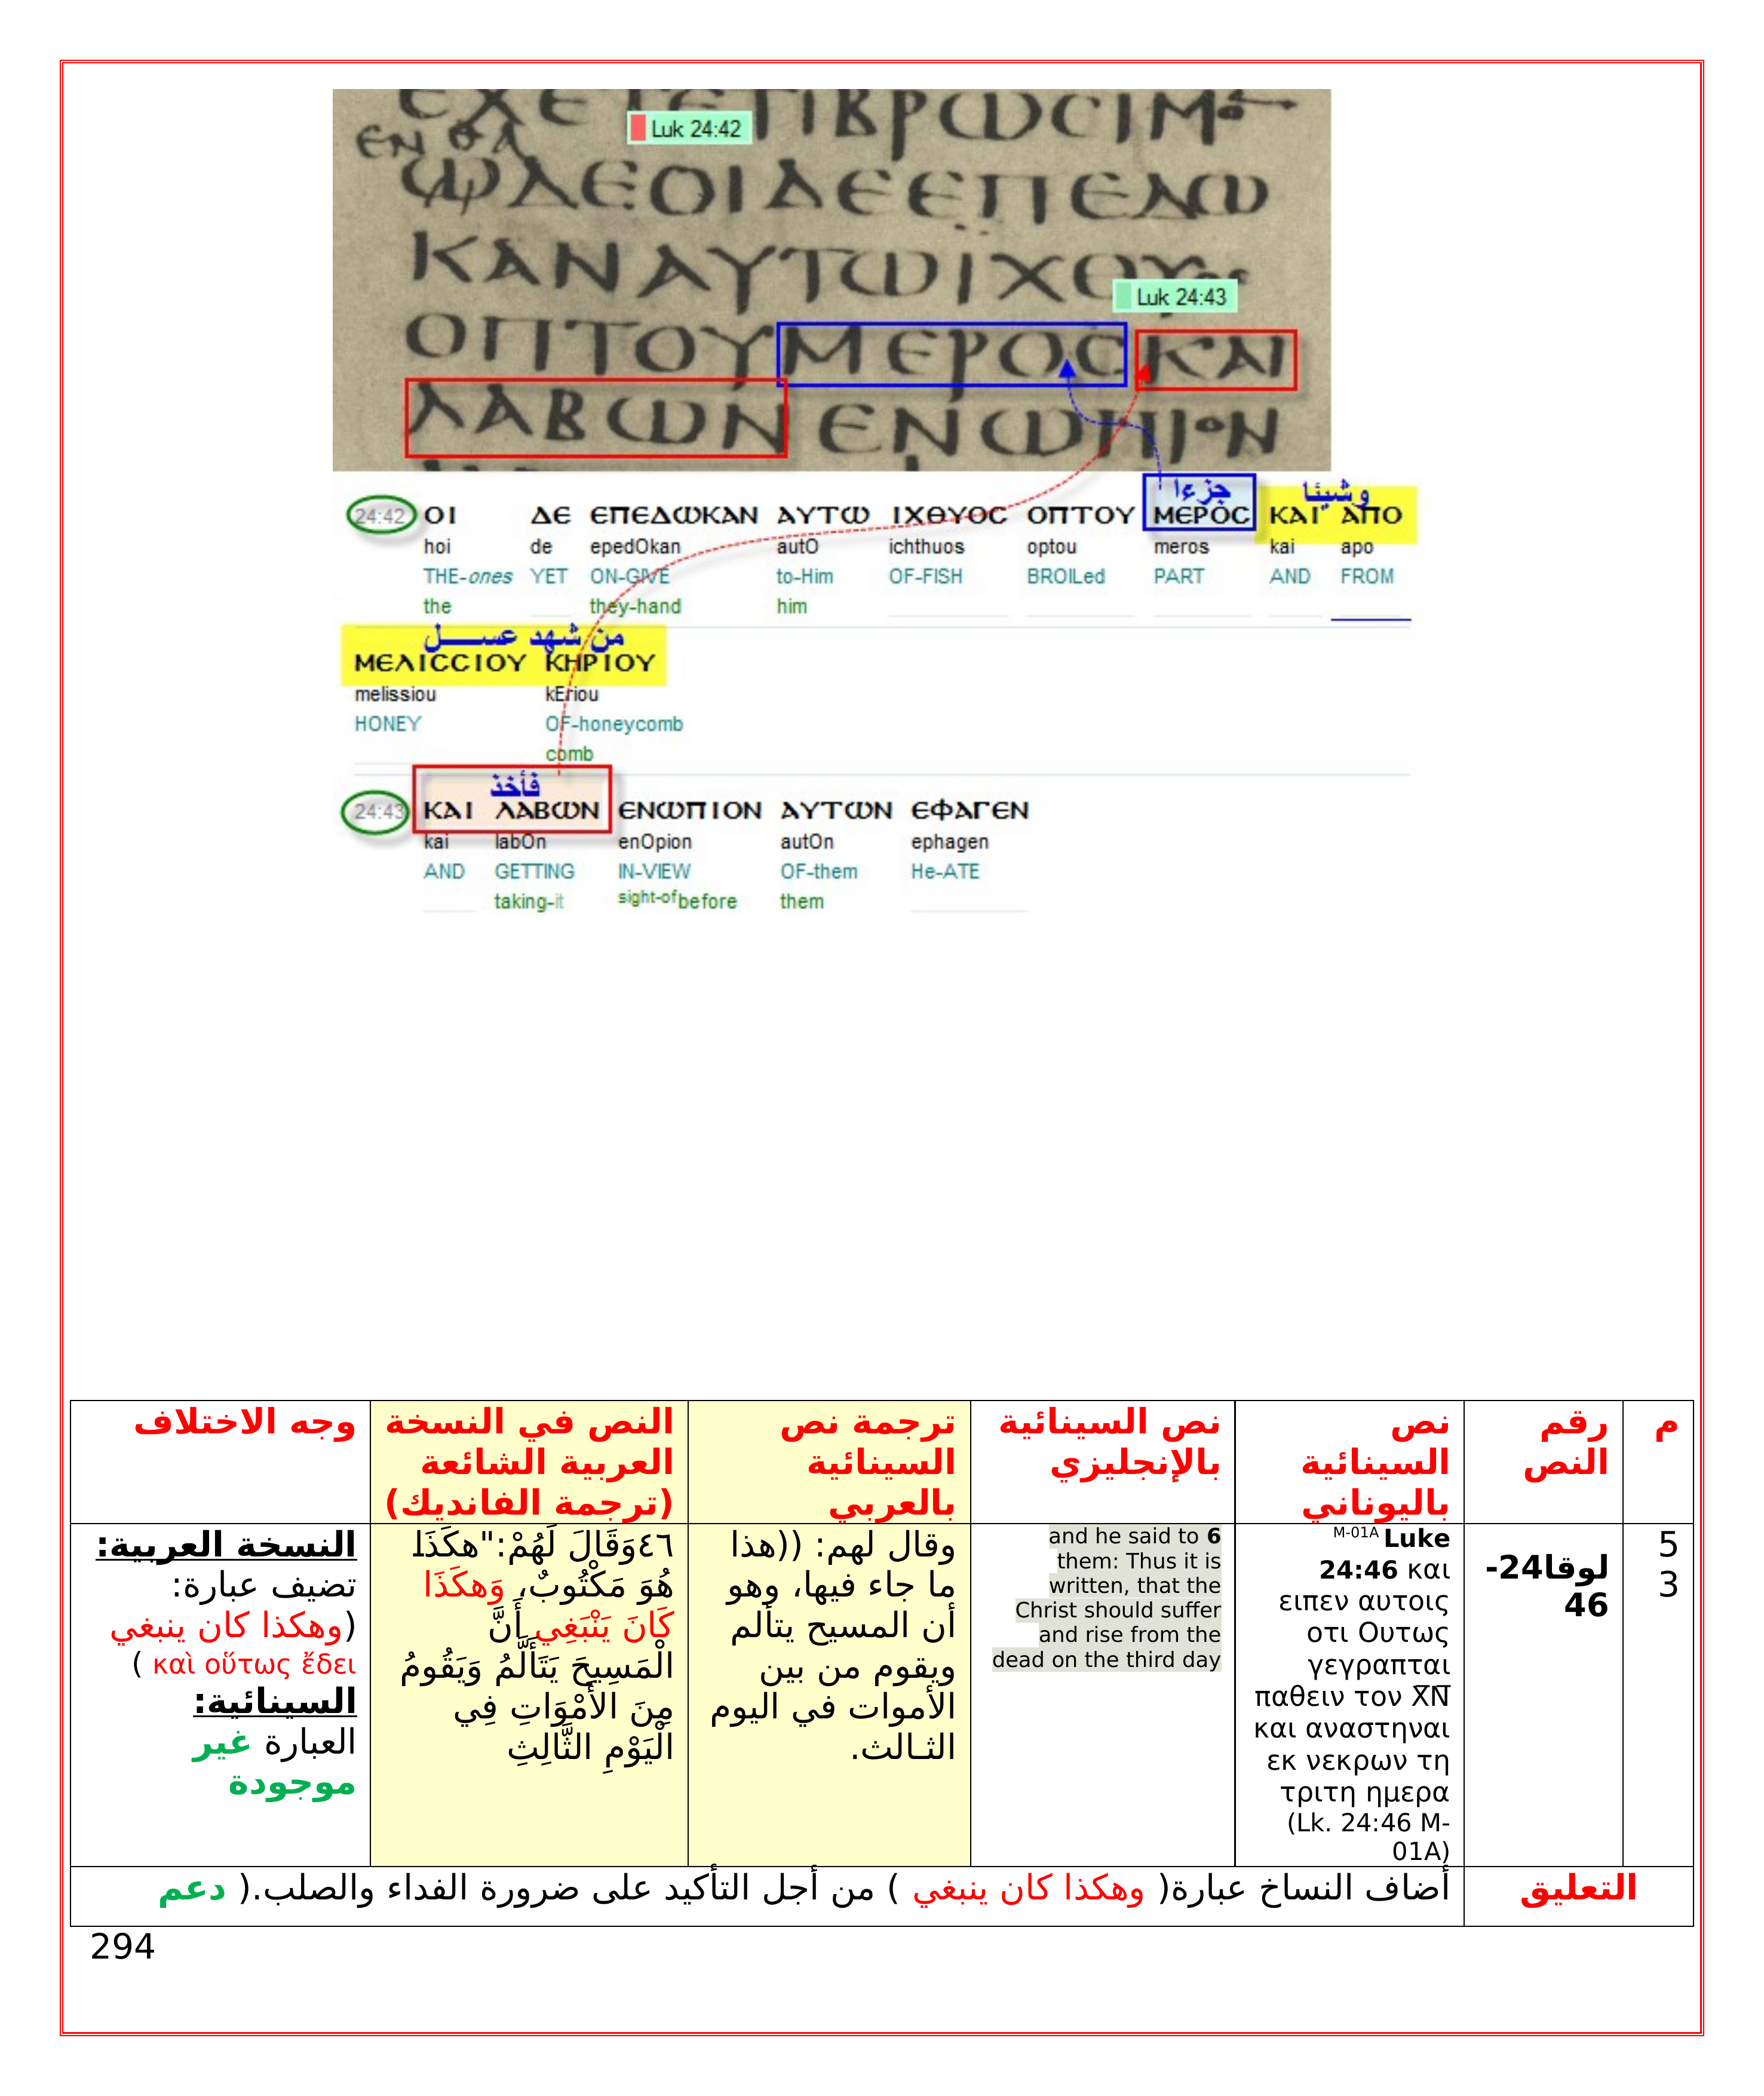 ΕΧΕΤΕΤΙΒΡΩCΙΜ
ΕΝΘΑ
Luk 24:42
ΔΕΟΙΔΕΕΠΕΔΩ
ΚΑΝΑΥΤΩΪΧΘΥΟC
Luk 24:43
ΟΠΤΟΥΜΕΡΟCΚΑΙ
ΛΑΒΩΝΕΝΩΠΙΟΝ
جزءا وشيئا
24:42 ΟΙ ΔΕ ΕΠΕΔΩΚΑΝ ΑΥΤΩ ΙΧΘΥΟC ΟΠΤΟΥ ΜΕΡΟC ΚΑΙ ΑΠΟ
hoi de epedOkan autO ichthuos optou meros kai apo
THE-ones YET ON-GIVE to-Him OF-FISH BROILed PART AND FROM
the they-hand him
من شهد عســـل
ΜΕΛΙCCΙΟΥ ΚΗΡΙΟΥ
melissiou kEriou
HONEY OF-honeycomb
comb
فأخذ
24:43 ΚΑΙ ΛΑΒΩΝ ΕΝΩΠΙΟΝ ΑΥΤΩΝ ΕΦΑΓΕΝ
kai labOn enOpion autOn ephagen
AND GETTING IN-VIEW OF-them He-ATE
taking-it sight-of before them
م
رقم
النص
نص
السينائية
باليوناني
نص السينائية
بالإنجليزي
ترجمة نص
السينائية
بالعربي
النص في النسخة
العربية الشائعة
(ترجمة الفانديك)
وجه الاختلاف
5
3
لوقا24-
46
M-01A Luke
24:46 και
ειπεν αυτοις
οτι Ουτως
γεγραπται
παθειν τον X̅N̅
και αναστηναι
εκ νεκρων τη
τριτη ημερα
(Lk. 24:46 M-
01A)
and he said to 6
them: Thus it is
written, that the
Christ should suffer
and rise from the
dead on the third day
وقال لهم: ((هذا
ما جاء فيها، وهو
أن المسيح يتألم
ويقوم من بين
الأموات في اليوم
الثـالث.
٤٦وَقَالَ لَهُمْ:"هكَذَا
هُوَ مَكْتُوبٌ، وَهكَذَا
كَانَ يَنْبَغِي أَنَّ
الْمَسِيحَ يَتَأَلَّمُ وَيَقُومُ
مِنَ الأَمْوَاتِ فِي
الْيَوْمِ الثَّالِثِ
النسخة العربية:
تضيف عبارة:
(وهكذا كان ينبغي
καὶ οὕτως ἔδει )
السينائية:
العبارة غير
موجودة
التعليق
أضاف النساخ عبارة( وهكذا كان ينبغي ) من أجل التأكيد على ضرورة الفداء والصلب.( دعم
294